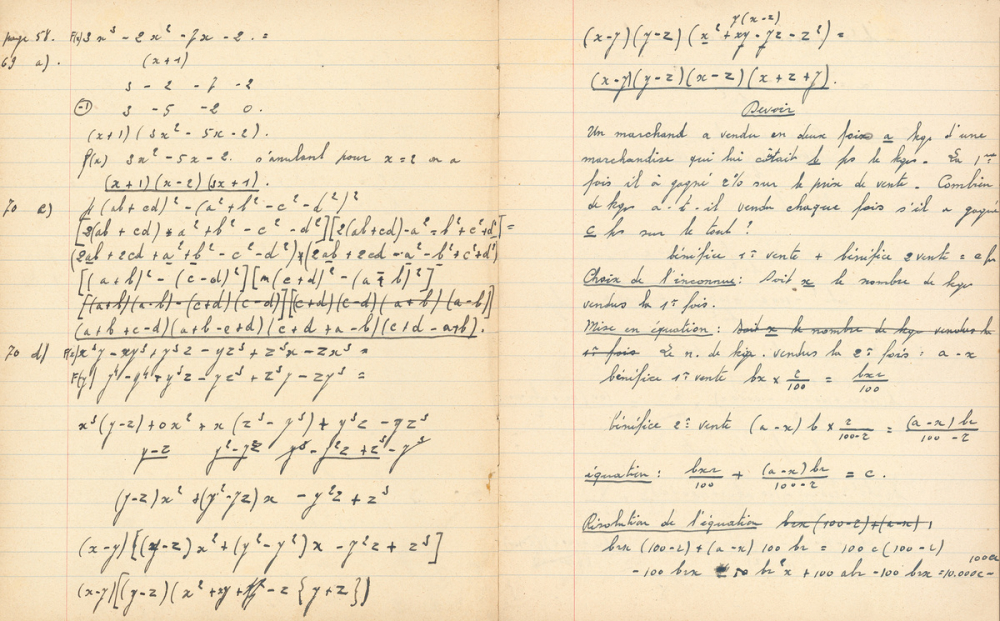 page 58. F(x) 3x³ - 2x² - 7x - 2. =
69 a). (x+1)
3 - 2 - 7 - 2
(-1) 3 - 5 - 2 0.
(x+1)(3x² - 5x - 2).
f(x) 3x² - 5x - 2. s'annulant pour x=2 on a
(x+1)(x-2)(3x+1).
70 c) 4(ab+cd)² - (a²+b²-c²-d²)²
[2(ab+cd)+a²+b²-c²-d²][2(ab+cd)-a²-b²+c²+d²]=
(2ab+2cd+a²+b²-c²-d²)x(2ab+2cd-a²-b²+c²+d²)
[(a+b)²-(c-d)²][(c+d)²-(a-b)²]
[(a+b)(a-b)-(c+d)(c-d)][(c+d)(c-d)(a+b)(a-b)]
(a+b+c-d)(a+b-c+d)(c+d+a-b)(c+d-a+b).
70 d) F(x) x³y - xy³ + y³z - yz³ + z³x - zx³ =
F(y) y⁴ - y⁴ + y³z - yz³ + z³y - zy³ =
x³(y-z)+0x²+x(z³-y³)+y³z-yz³
y-z y²-yz
(y-z)x²+(y²-yz)x - y²z + z³
(x-y)[(y-z)x²+(y²-yz)x - y²z + z³]
(x-y)[(y-z)(x²+xy - z{y+z})
y(x-z)
(x-y)(y-z)(x²+xy-yz-z²) =
(x-y)(y-z)(x-z)(x+z+y).
Devoir
Un marchand a vendu en deux fois a kgr d'une
marchandise qui lui côtait b frs le kgr. La 1ère
fois il à gagné 2% sur le prix de vente. Combien
de kgr a-t-il vendu chaque fois s'il a gagné
c frs sur le tout?
bénifice 1re vente + bénifice 2 vente = c fr
Choix de l'inconnue: Soit x le nombre de kgr
vendus la 1re fois.
Mise en équation: Soit x le nombre de kgr vendus la
1re fois Le n. de kgr. vendus la 2e fois: a-x
bénifice 1re vente bx x r/100 = bxr/100
bénifice 2e vente (a-x) b x r/100-r = (a-x)br/100-r
équation: bxr/100 + (a-x)br/100-r = c.
Résolution de l'équation brx(100-r)+(a-x)
brx(100-r)+(a-x)100 br = 100c(100-r)
-100 brx br²x + 100 abr - 100 brx = 10.000c -